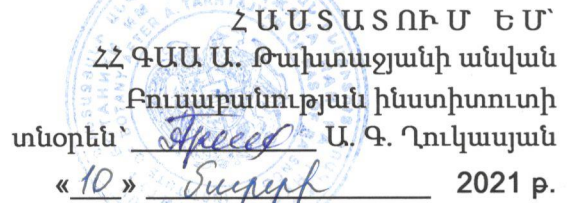 ՀԱՍՏԱՏՈՒՄ ԵՄ՝
ՀՀ ԳԱԱ Ա. Թախտաջյանի անվան
Բուսաբանության ինստիտուտի
տնօրեն՝ Ա. Գ. Ղուկասյան
«10» մարտի 2021 թ.